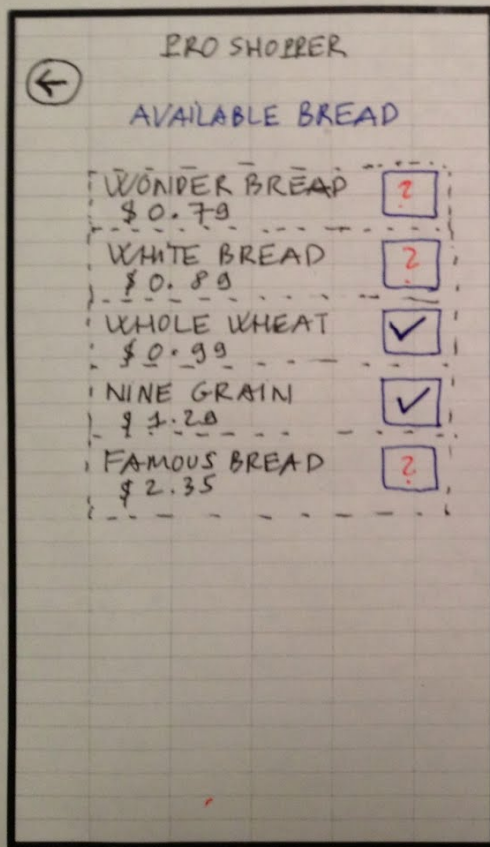 PRO SHOPPER
AVAILABLE BREAD
WONDER BREAD
?
$ 0.79
WHITE BREAD
?
$ 0.89
WHOLE WHEAT
$ 0.99
NINE GRAIN
$ 1.29
FAMOUS BREAD
?
$ 2.35